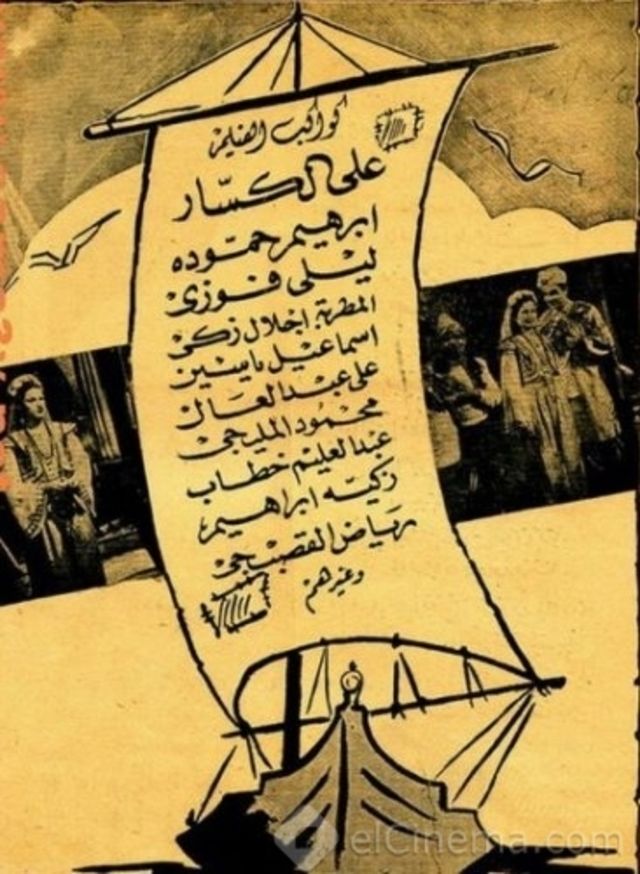 كواكب الفيلم
على الكسّار
ابرهيم حمّوده
ليلى فوزى
المطربة اجلال زكى
اسماعيل ياسين
على عبد العال
محمود المليجى
عبد العليم خطاب
زكيه ابراهيم
رياض القصبجى
وغيرهم
elCinema.com